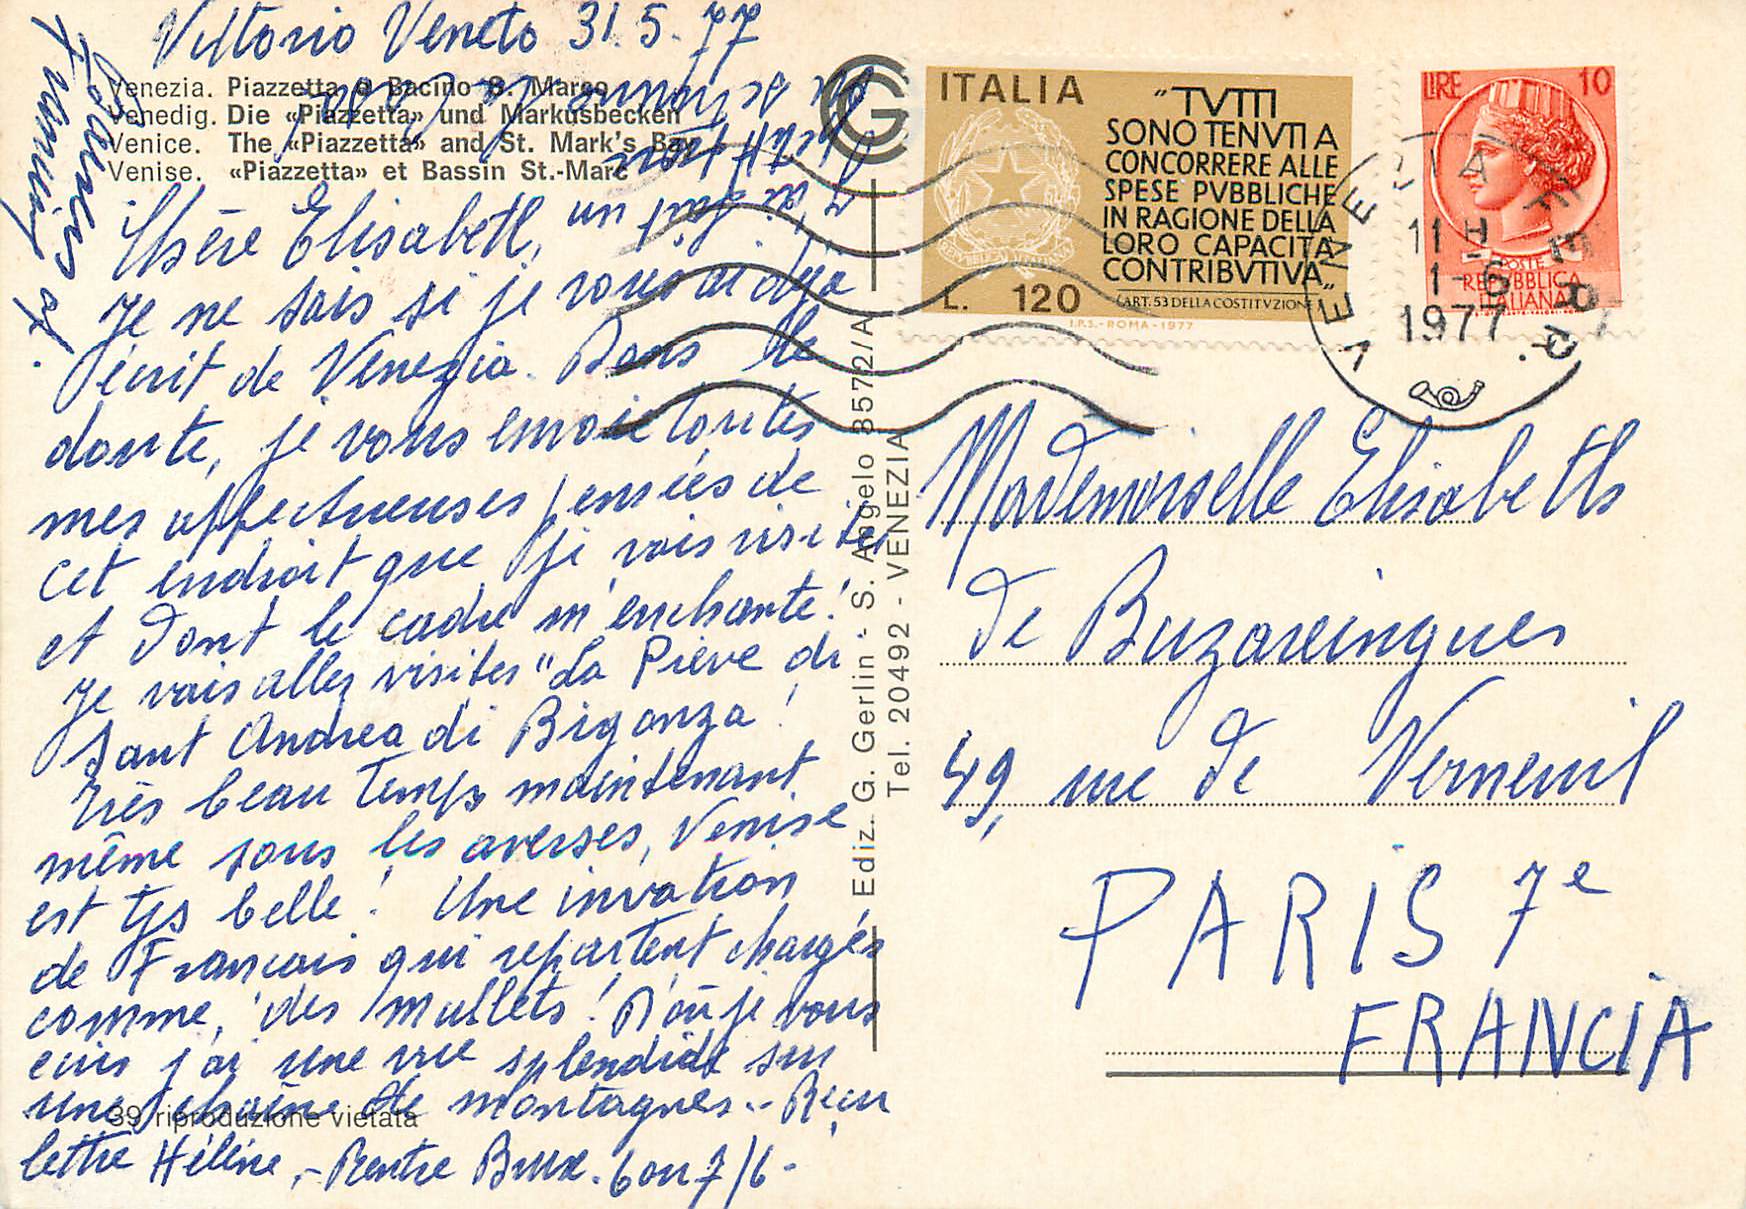 Vittorio Veneto 31.5.77
Venezia. Piazzetta e Bacino S. Marco
Venedig. Die «Piazzetta» und Markusbecken
Venice. The «Piazzetta» and St. Mark's Bay
Venise. «Piazzetta» et Bassin St.-Marc
Chère Elisabeth,
Je ne sais si je vous ai déjà
écrit de Venezia. Dans le
doute, je vous envoie toutes
mes affectueuses pensées de
cet endroit que je vais visiter
et dont le cadre m'enchante!
Je vais aller visiter "La Pieve di
Sant Andrea di Bigonza!
Très beau temps maintenant
même sous les averses, Venise
est très belle! Une invation
de Francais qui repartent chargés
comme, des mullets! D'où je vous
écris j'ai une vue splendide sur
une chaîne de montagnes.- Reçu
lettre Hélène.- Rentre Brux. 6 ou 7/6-
39 riproduzione vietata
Ediz. G. Gerlin - S. Angelo 3572/A
Tel. 20492 - VENEZIA
G
ITALIA
"TVTTI
SONO TENVTI A
CONCORRERE ALLE
SPESE PVBBLICHE
IN RAGIONE DELLA
LORO CAPACITÀ
CONTRIBVTIVA"
(ART. 53 DELLA COSTITVZIONE)
REPVBBLICA ITALIANA
L. 120
I.P.S.-ROMA-1977
LIRE 10
POSTE
REPUBBLICA
ITALIANA
VENEZIA FERR.
11 H
1-6
1977
Mademoiselle Elisabeth
de Buzareingues
49, rue de Verneuil
PARIS 7e
FRANCIA